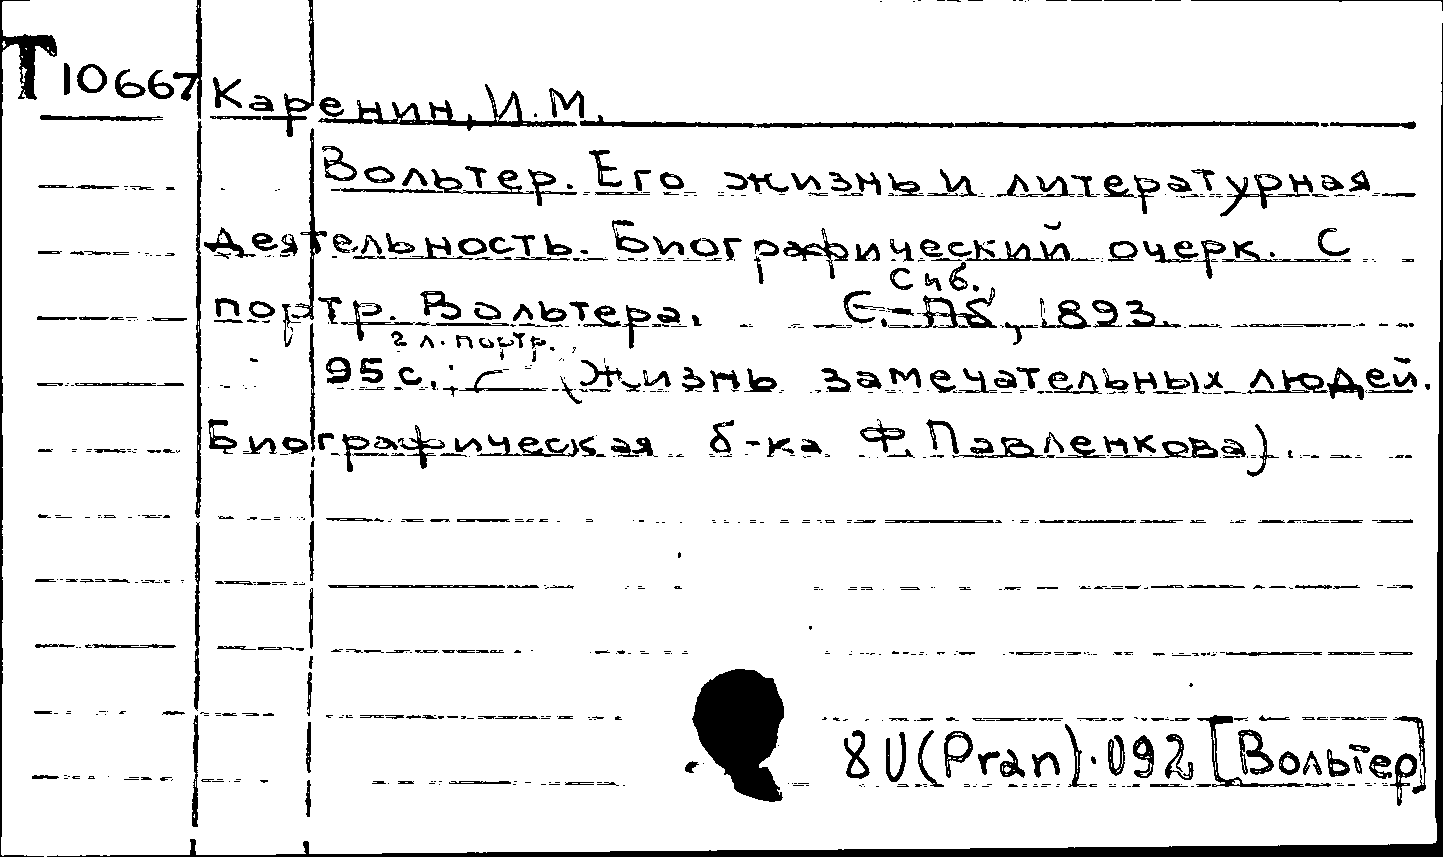 Т10667 Каренин, И.М.
Вольтер. Его жизнь и литературная
деятельность. Биографический очерк. С
портр. Вольтера. Спб., 1893.
95 с.; г л. портр. (Жизнь замечательных людей.
Биографическая б-ка Ф. Павленкова).
8U(Pran).092 [Вольтер]